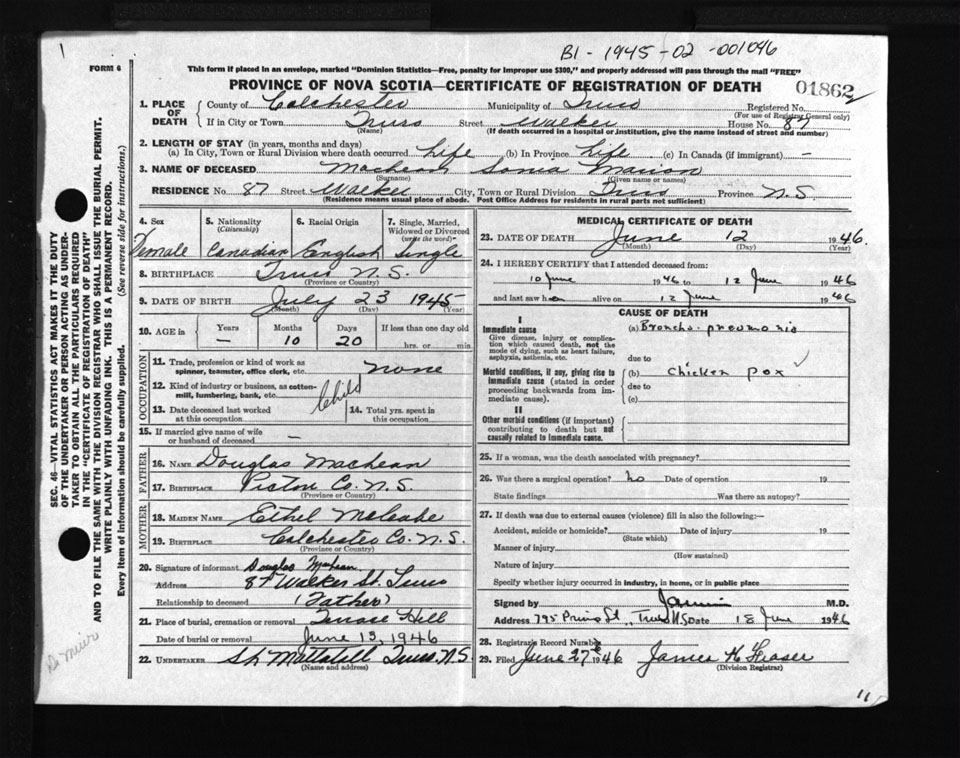 1
B1 - 1945 - 02 - 001046
FORM 6
This form if placed in an envelope, marked "Dominion Statistics—Free, penalty for improper use $300," and properly addressed will pass through the mail "FREE"
PROVINCE OF NOVA SCOTIA—CERTIFICATE OF REGISTRATION OF DEATH
01862
1. PLACE OF DEATH
County of Colchester Municipality of Truro Registered No.
(For use of Registrar General only)
If in City or Town Truro Street Walker House No. 87
(Name) (If death occurred in a hospital or institution, give the name instead of street and number)
2. LENGTH OF STAY (in years, months and days)
(a) In City, Town or Rural Division where death occurred Life (b) In Province Life (c) In Canada (if immigrant) —
3. NAME OF DECEASED MacLean Sonia Marion
(Surname) (Given name or names)
RESIDENCE No. 87 Street Walker City, Town or Rural Division Truro Province N.S.
(Residence means usual place of abode. Post Office Address for residents in rural parts not sufficient)
4. Sex Female
5. Nationality (Citizenship) Canadian
6. Racial Origin English
7. Single, Married, Widowed or Divorced (write the word) Single
8. BIRTHPLACE Truro N.S.
(Province or Country)
9. DATE OF BIRTH July 23 1945
(Month) (Day) (Year)
10. AGE in Years Months Days If less than one day old
— 10 20 hrs. or min.
OCCUPATION
11. Trade, profession or kind of work as spinner, teamster, office clerk, etc. none
12. Kind of industry or business, as cotton-mill, lumbering, bank, etc. Child
13. Date deceased last worked at this occupation
14. Total yrs. spent in this occupation
15. If married give name of wife or husband of deceased —
FATHER
16. NAME Douglas MacLean
17. BIRTHPLACE Pictou Co. N.S.
(Province or Country)
MOTHER
18. MAIDEN NAME Ethel McCabe
19. BIRTHPLACE Colchester Co. N.S.
(Province or Country)
20. Signature of informant Douglas MacLean
Address 87 Walker St. Truro
Relationship to deceased (Father)
21. Place of burial, cremation or removal Terrace Hill
Date of burial or removal June 13, 1946
22. UNDERTAKER Mattatall Truro, N.S.
(Name and address)
MEDICAL CERTIFICATE OF DEATH
23. DATE OF DEATH June 12 1946.
(Month) (Day) (Year)
24. I HEREBY CERTIFY that I attended deceased from:
10 June 1946 to 12 June 1946
and last saw h alive on 12 June 1946
CAUSE OF DEATH
I
Immediate cause
Give disease, injury or complication which caused death, not the mode of dying, such as heart failure, asphyxia, asthenia, etc.
(a) Broncho-pneumonia
due to
Morbid conditions, if any, giving rise to immediate cause (stated in order proceeding backwards from immediate cause).
(b) chicken pox
due to
(c)
II
Other morbid conditions (if important) contributing to death but not causally related to immediate cause.
25. If a woman, was the death associated with pregnancy?
26. Was there a surgical operation? no Date of operation 19
State findings Was there an autopsy?
27. If death was due to external causes (violence) fill in also the following:—
Accident, suicide or homicide? Date of injury 19
(State which)
Manner of injury
(How sustained)
Nature of injury
Specify whether injury occurred in industry, in home, or in public place
Signed by M.D.
Address 795 Prince St., Truro N.S. Date 18 June 1946
28. Registrar's Record Number
29. Filed June 27 1946 James H Fraser
(Division Registrar)
11
SEC. 46—VITAL STATISTICS ACT MAKES IT THE DUTY OF THE UNDERTAKER OR PERSON ACTING AS UNDERTAKER TO OBTAIN ALL THE PARTICULARS REQUIRED IN THE "CERTIFICATE OF REGISTRATION OF DEATH" AND TO FILE THE SAME WITH THE DIVISION REGISTRAR WHO SHALL ISSUE THE BURIAL PERMIT.
WRITE PLAINLY WITH UNFADING INK. THIS IS A PERMANENT RECORD.
Every item of information should be carefully supplied. (See reverse side for instructions.)